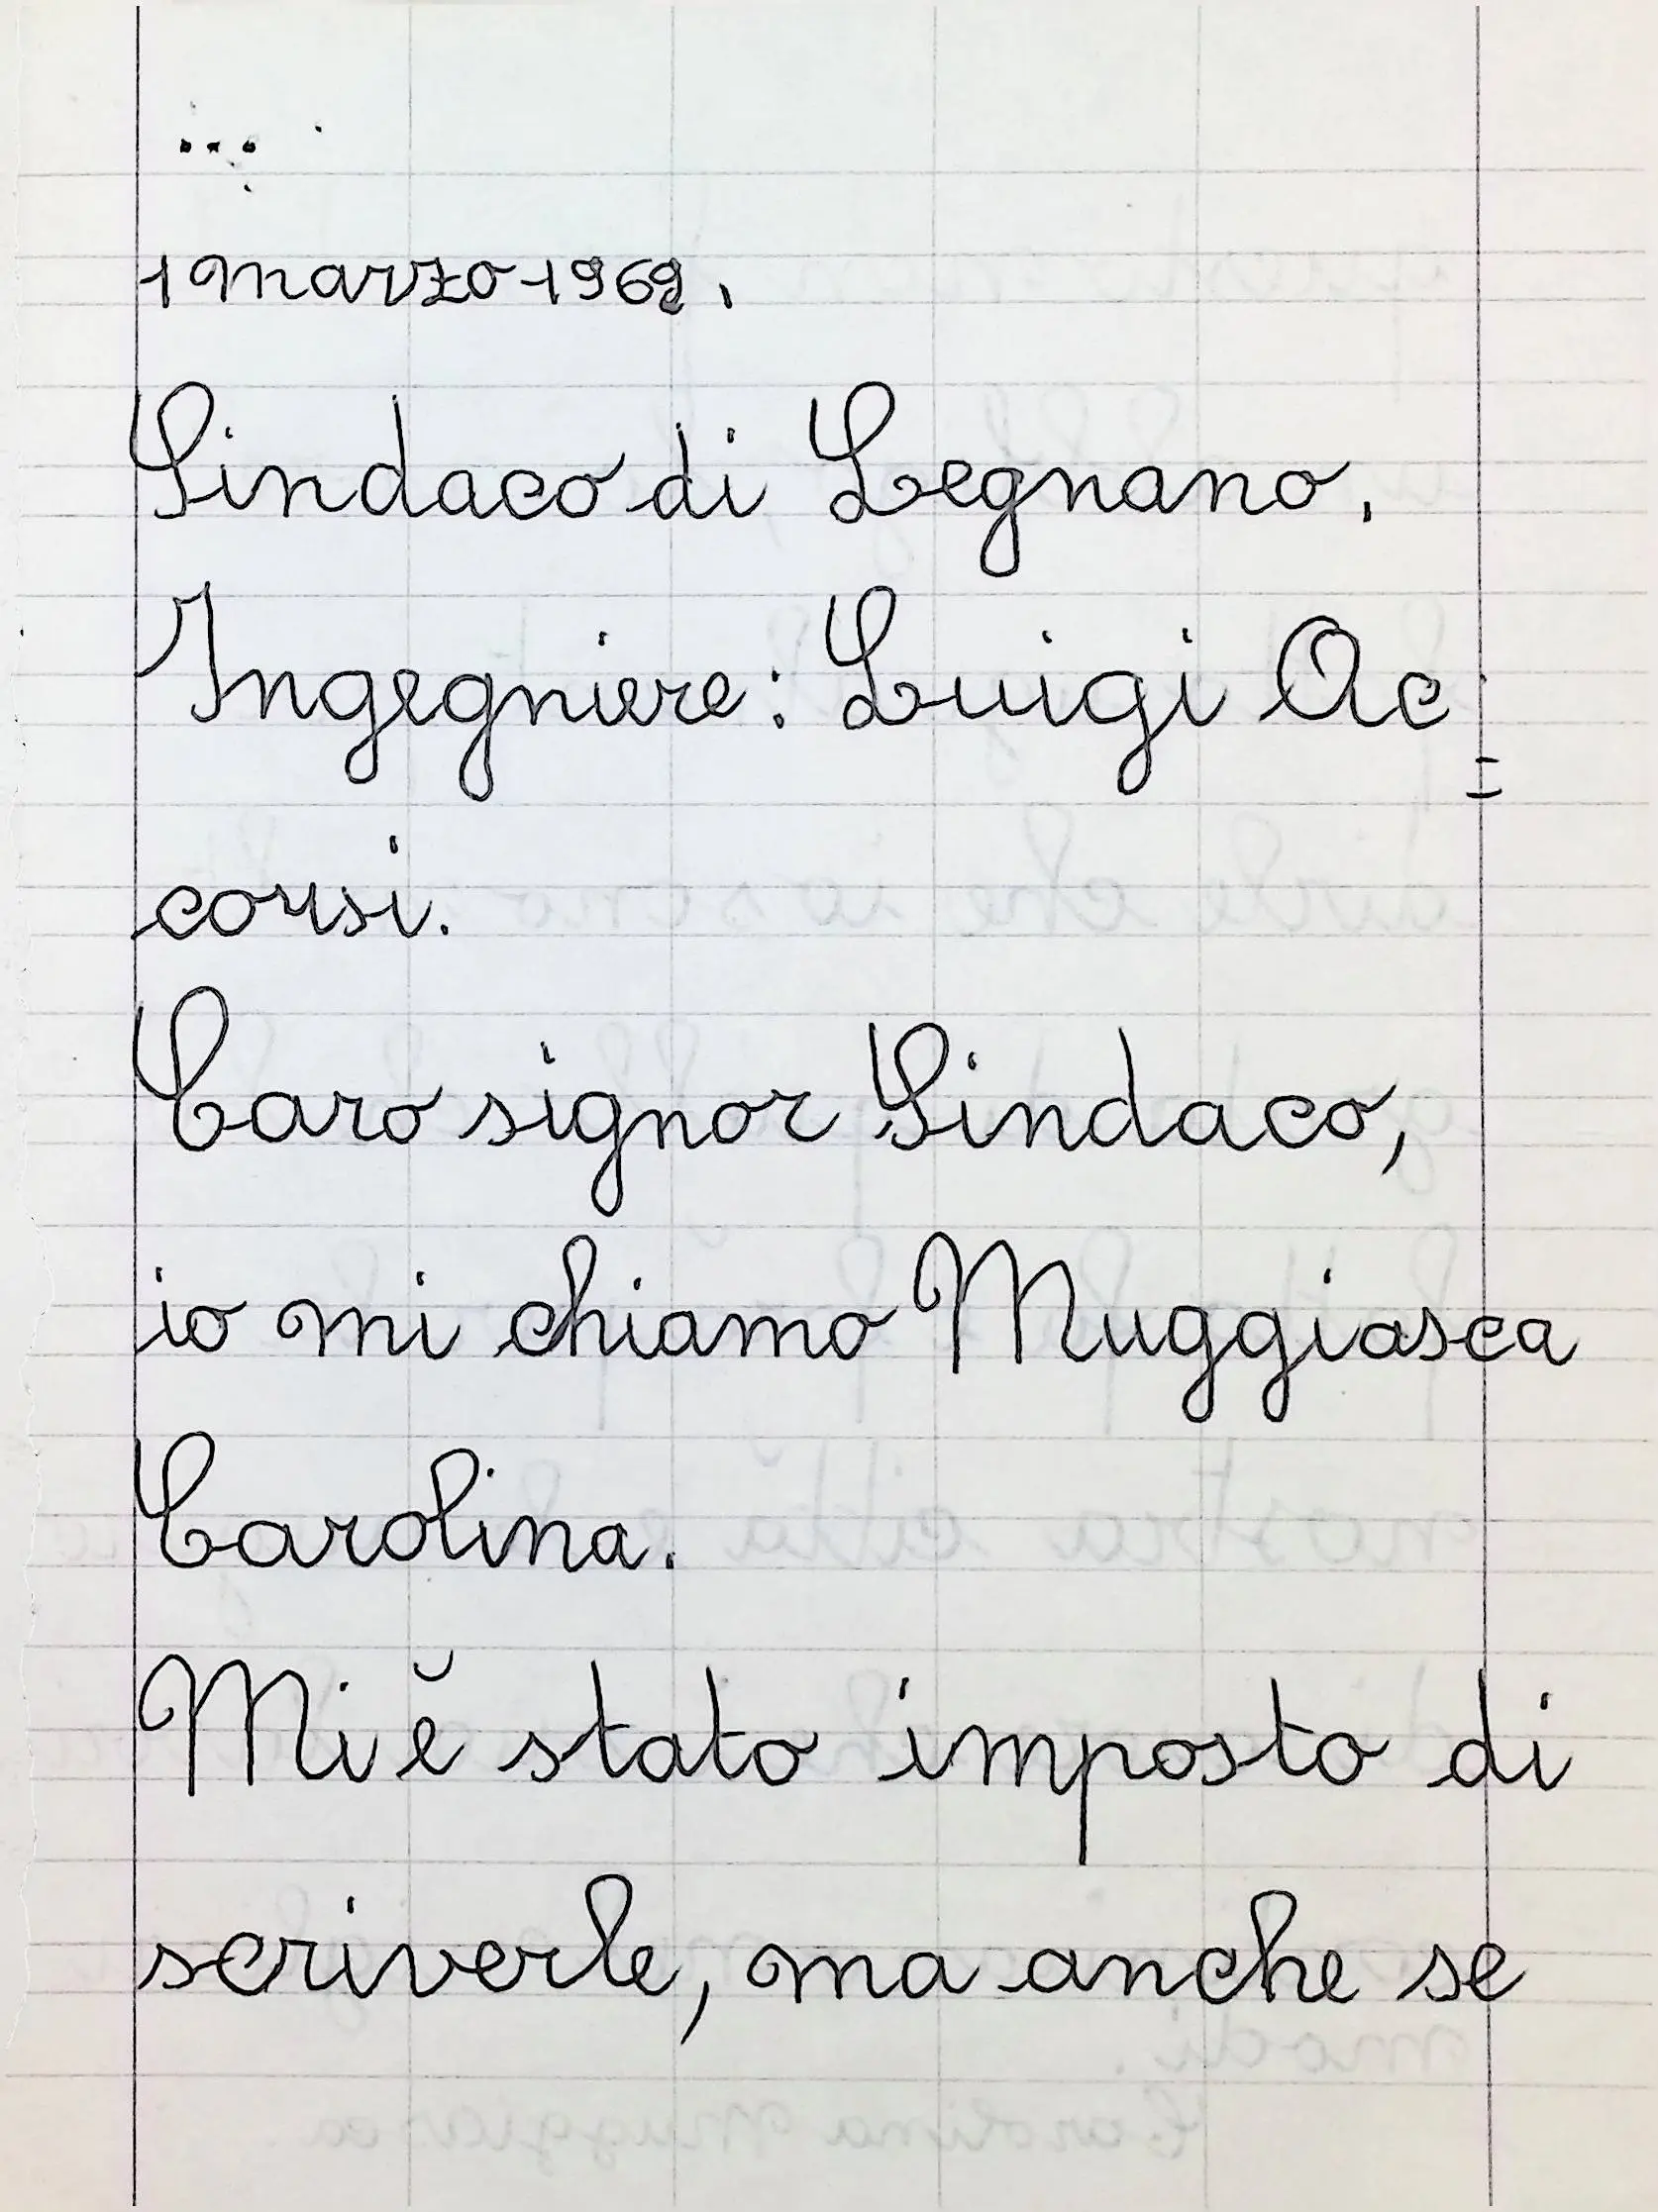 1 marzo 1969.
Sindaco di Legnano.
Ingegniere: Luigi Ac=
corsi.
Caro signor Sindaco,
io mi chiamo Muggiasca
Carolina.
Mi è stato imposto di
scriverle, ma anche se